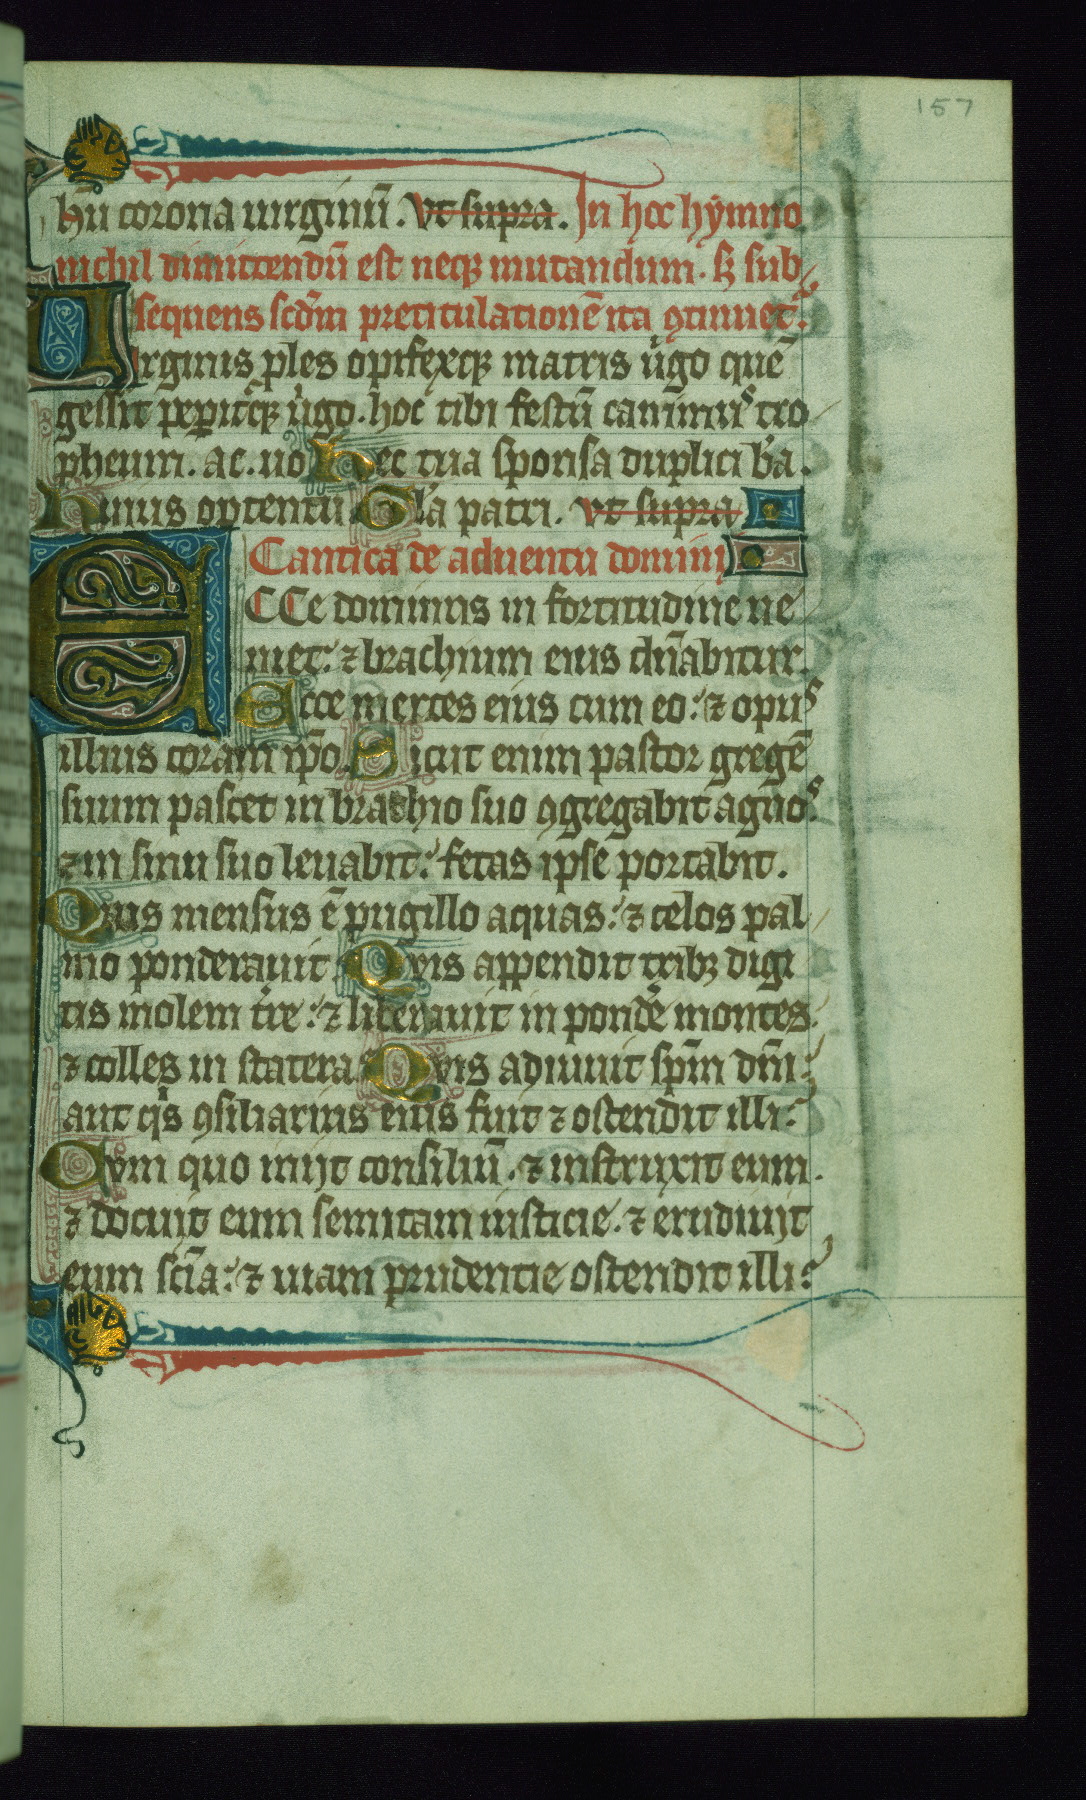 157
Hu corona uirginū. Vt supra. In hoc hymno
nichil dimittendū est neqꝫ mutandum. sꝫ sub
sequens scdm̄ pretitulationē ita ꝯtinuet᷑.
Uirginis ꝓles opifexqꝫ matris uͥgo quē
gessit peꝑitqꝫ uͥgo. hoc tibi festū canimus tro
pheum. ac. uo Hec tua sponsa duplici bͣa.
Huius obtentu Glā patri. vt supra
Cantica de aduentu domini
ECCe dominus in fortitudine ue
niet: ⁊ brachium eius dn̄abitur.
Ecce merces eius cum eo: ⁊ opus
illius coram ip̄o. Sicut enim pastor gregē
suum pascet in brachio suo ꝯgregabit agnos:
⁊ in sinu suo leuabit: fetas ipse portabit.
Quis mensus ē pugillo aquas: ⁊ celos pal
mo ponderauit Quis appendit tribꝫ digi
tis molem tr̄e: ⁊ liberauit in pondē montes
⁊ colles in statera Quis adiuuit sp̄m dn̄i:
aut qͥs ꝯsiliarius eius fuit ⁊ ostendit illi:
Cum quo inijt consiliū. ⁊ instruxit eum.
⁊ docuit eum semitam iusticie. ⁊ erudiuit
eum sciā: ⁊ uiam prudentie ostendit illi: